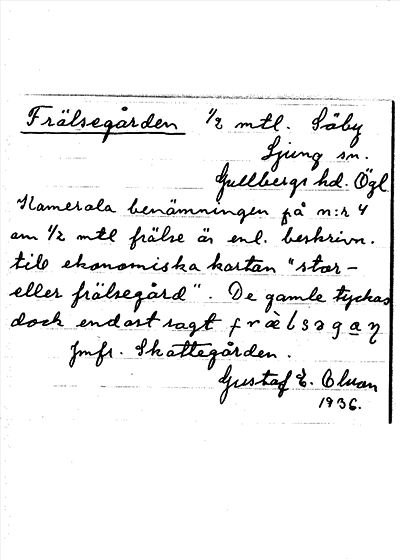 Frälsegården 1/2 mtl. Säby
Ljung sn.
Gullbergs hd. Ögl
Kamerala benämningen på n:r 4
om 1/2 mtl frälse är enl. beskrivn.
till ekonomiska kartan "stor-
eller frälsegård". De gamle tyckas
dock endast sagt frὲlsəgaη
Jmfr. Skattegården.
Gustaf E. Olson
1936.